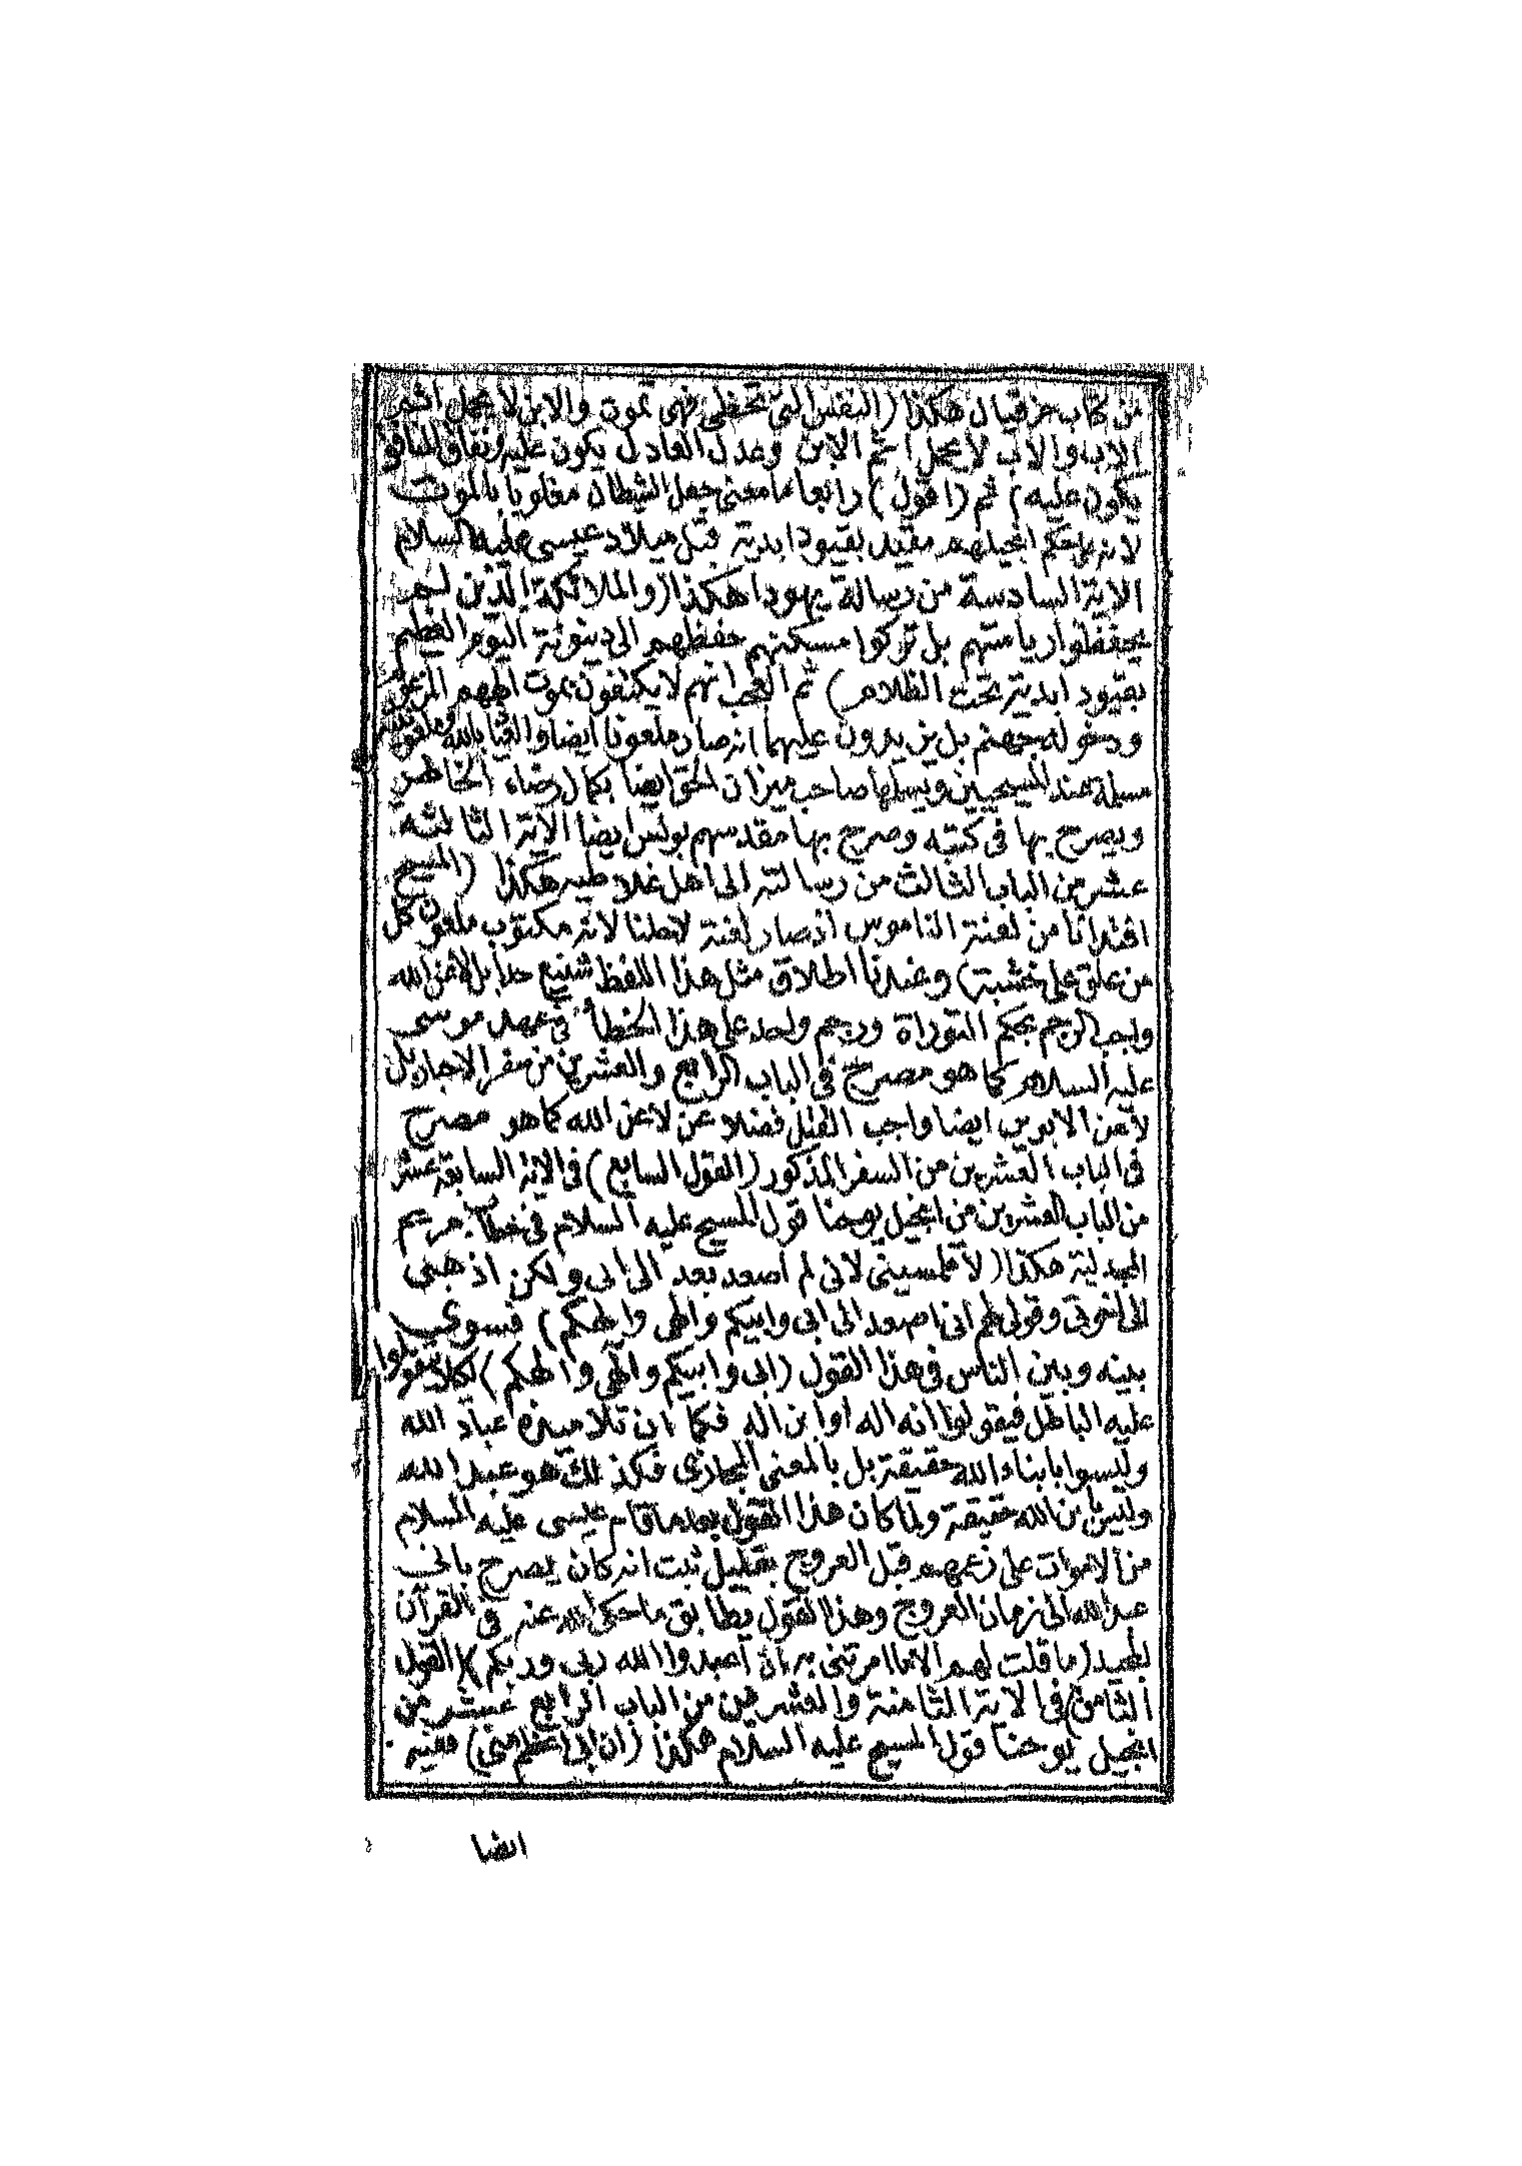 من كتاب حزقيال هكذا (النفس التي تخطى فهي تموت والابن لا يحمل اثم
الاب والاب لا يحمل اثم الابن وعدل العادل يكون عليه ونفاق المنافق
يكون عليه) ثم (اقول) رابعا ما معنى جعل الشيطان مغلوبا بالموت
لانه بحكم انجيلهم مقيد بقيود ابدية قبل ميلاد عيسى عليه السلام
الاية السادسة من رسالة يهودا هكذا (والملائكة الذين لم
يحفظوا رياستهم بل تركوا مسكنهم حفظهم الى دينونة اليوم العظيم
بقيود ابدية تحت الظلام) ثم العجب انهم لا يكتفون بموت الههم المزعوم
ودخوله جهنم بل يزيدون عليهما انه صار ملعونا ايضا والعياذ بالله وملعونيته
مسلمة عند المسيحيين ويسلمها صاحب ميزان الحق ايضا بكمال رضاء الخاطر
ويصرح بها في كتبه وصرح بها مقدسهم بولس ايضا الاية الثالثة
عشر من الباب الثالث من رسالته الى اهل غلاطيه هكذا (المسيح
افتدانا من لعنة الناموس اذ صار لعنة لاجلنا لانه مكتوب ملعون كل
من علق على خشبة) وعندنا اطلاق مثل هذا اللفظ شنيع جدا بل لاعن الله
واجب الرجم بحكم التوراة ورجم واحد على هذا الخطأ في عهد موسى
عليه السلام كما هو مصرح في الباب الرابع والعشرين من سفر الاحبار بل
لاعن الابوين ايضا واجب القتل فضلا عن لاعن الله كما هو مصرح
في الباب العشرين من السفر المذكور (القول السابع) في الاية السابعة عشر
من الباب العشرين من انجيل يوحنا قول المسيح عليه السلام في خطاب مريم
المجدلية هكذا (لا تلمسيني لاني لم اصعد بعد الى ابي ولكن اذهبي
الى اخوتي وقولي لهم اني اصعد الى ابي وابيكم والهي والهكم) فسوى
بينه وبين الناس في هذا القول (ابي وابيكم والهي والهكم) لكيلا يتقولوا
عليه الباطل فيقولوا انه اله او ابن اله فكما ان تلاميذه عباد الله
وليسوا بابناء الله حقيقة بل بالمعنى المجازي فكذلك هو عبد الله
وليس بابن الله حقيقة ولما كان هذا القول بعد ما قام عيسى عليه السلام
من الاموات على زعمهم قبل العروج بقليل ثبت انه كان يصرح باني
عبد الله الى زمان العروج وهذا القول يطابق ما حكى الله عنه في القرآن
المجيد (ما قلت لهم الا ما امرتني به ان اعبدوا الله ربي وربكم) (القول
الثامن) في الاية الثامنة والعشرين من الباب الرابع عشر من
انجيل يوحنا قول المسيح عليه السلام هكذا (ان ابي اعظم مني) ففيه
ايضا